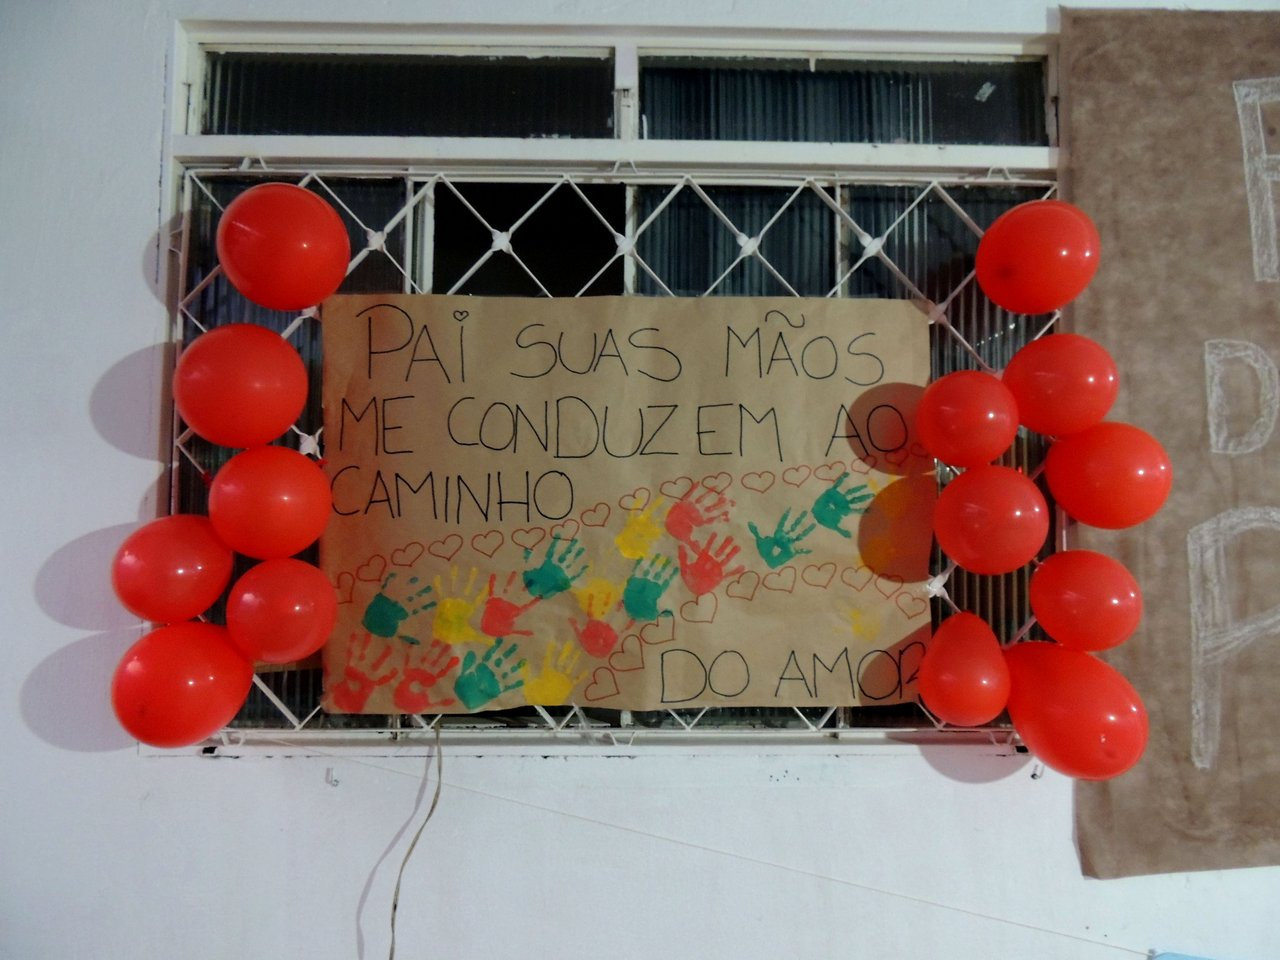 PAi SUAS MÃOS
ME CONDUZEM AO
CAMINHO
DO AMOR
D